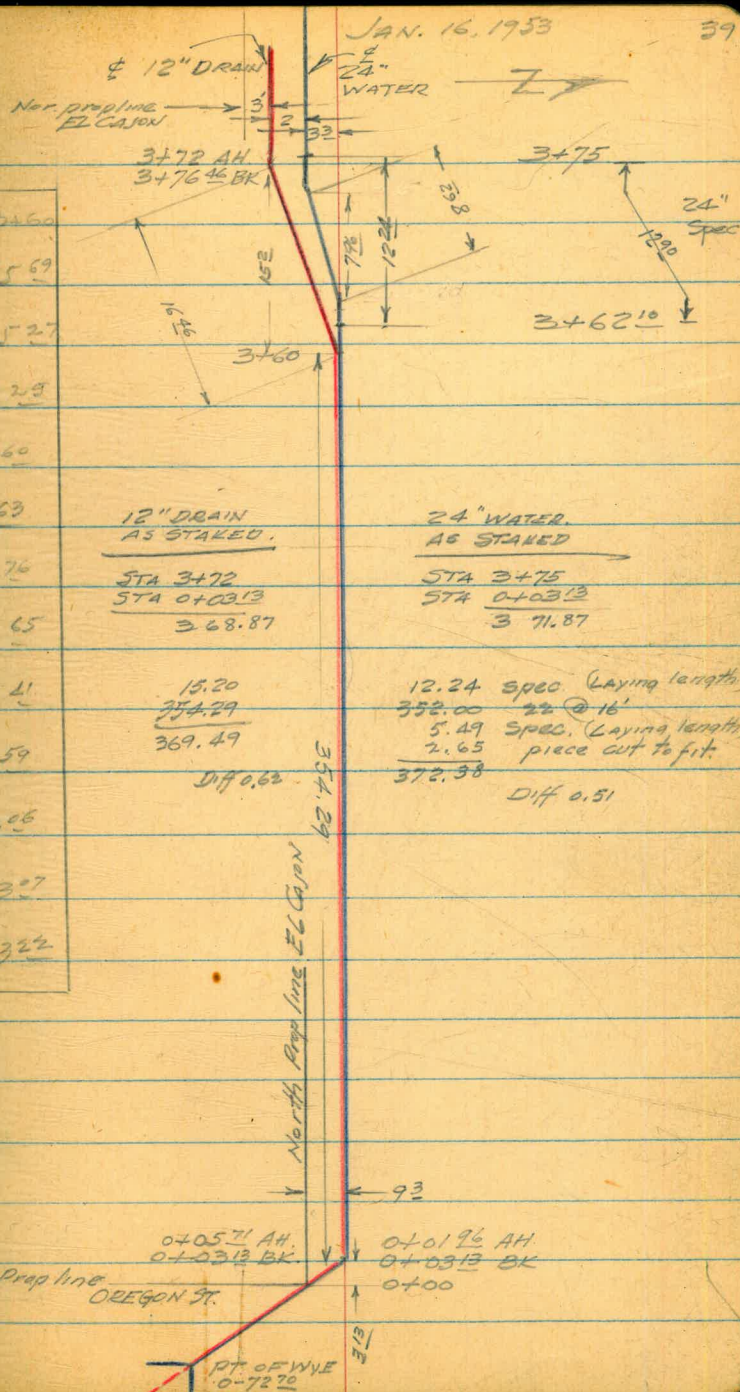 JAN. 16, 1953
39
℄ 12" DRAIN
℄
24"
WATER
Nor. prop line
EL CAJON
3'
2
3 3
3+72 AH
3+76 46 BK
3+75
24"
Spec
12 90
8 62
7 96
12 24
15 2
16 46
3+62 10
3+60
5 69
5 27
29
60
63
76
65
41
59
06
3 07
3 22
12" DRAIN
AS STAKED.
STA 3+72
STA 0+03 13
3 68.87
15.20
354.29
369.49
Diff 0.62
24" WATER.
AS STAKED
STA 3+75
STA 0+03 13
3 71.87
12.24 Spec (Laying length
352.00 22 @ 16'
5.49 Spec. (Laying length
2.65 piece cut to fit.
372.38
Diff 0.51
354.29
North Prop line EL CAJON
9 3
0+05 71 AH.
0+03 13 BK.
0+01 96 AH
0+03 13 BK
0+00
Prop line
OREGON ST.
3 13
PT OF WYE
0-72 70